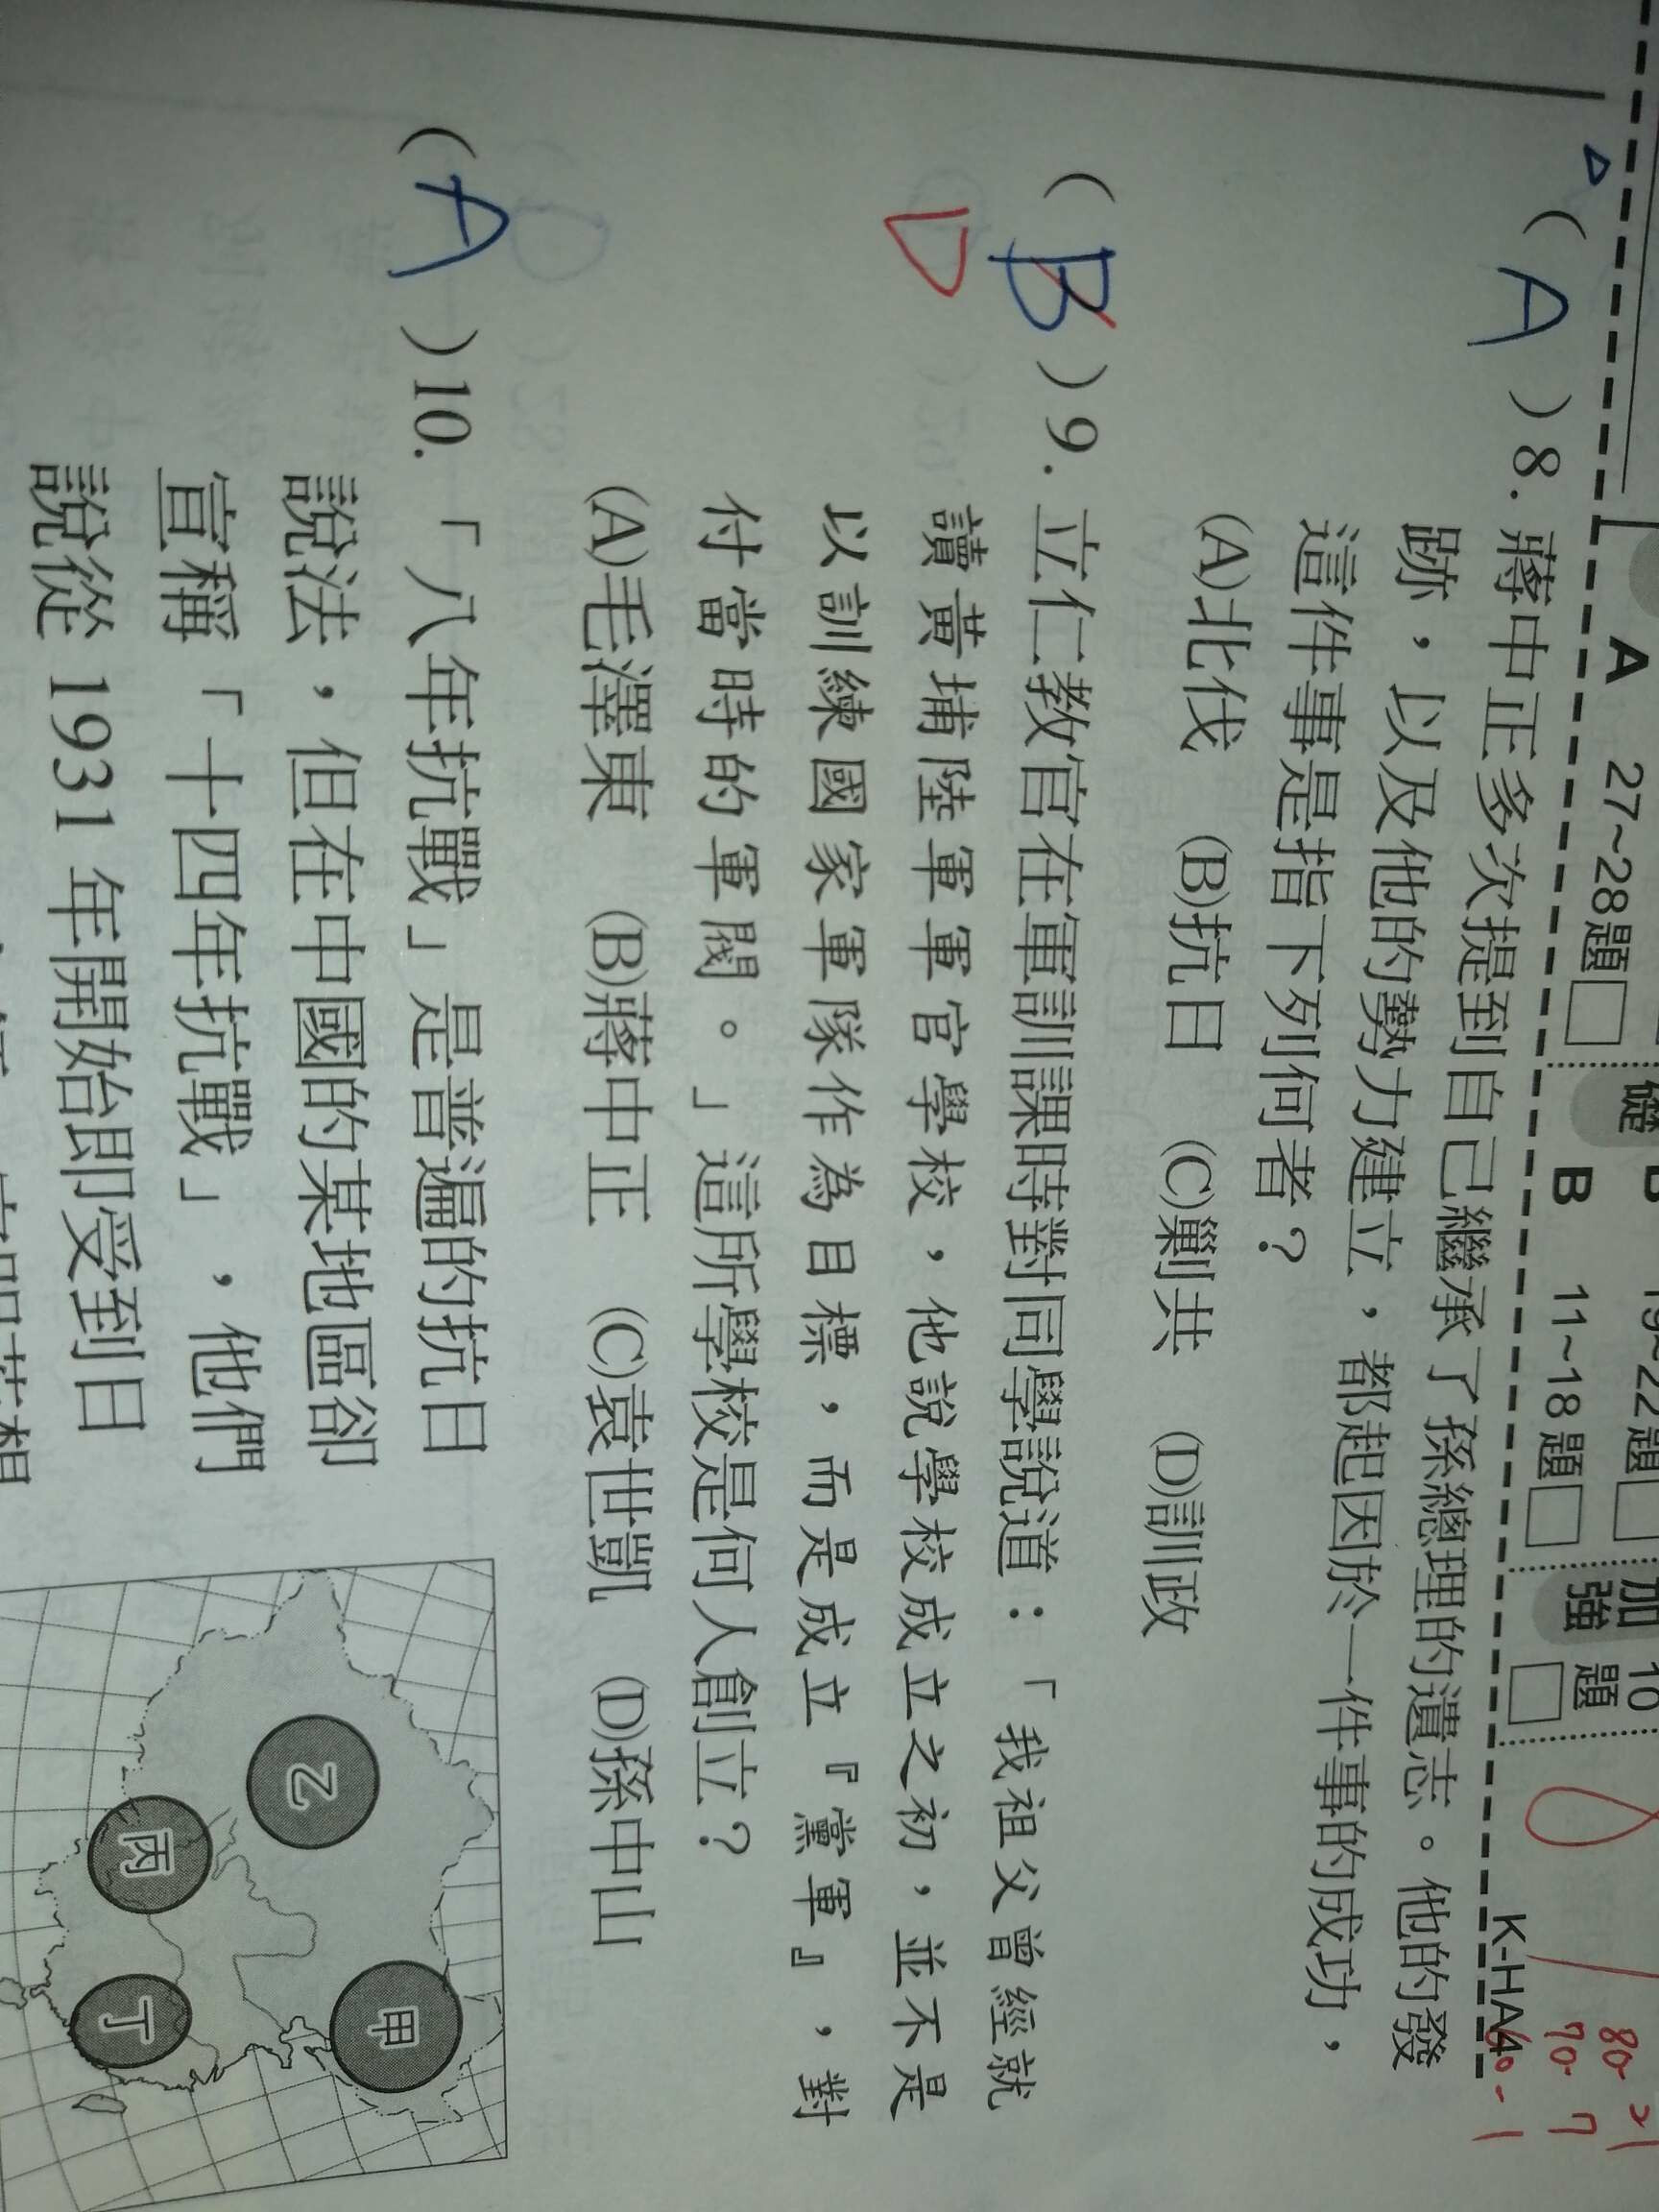 礎 B 19~22題 加 10
A 27~28題 B 11~18題 強 題
80- 21
70- 7
60- 1
K-HA4
(A)8. 蔣中正多次提到自己繼承了孫總理的遺志。他的發
跡，以及他的勢力建立，都起因於一件事的成功，
這件事是指下列何者？
(A)北伐 (B)抗日 (C)剿共 (D)訓政
(B)9. 立仁教官在軍訓課時對同學說道：「我祖父曾經就
D
讀黃埔陸軍軍官學校，他說學校成立之初，並不是
以訓練國家軍隊作為目標，而是成立『黨軍』，對
付當時的軍閥。」這所學校是何人創立？
(A)毛澤東 (B)蔣中正 (C)袁世凱 (D)孫中山
(A)10. 「八年抗戰」是普遍的抗日
說法，但在中國的某地區卻
宣稱「十四年抗戰」，他們
說從 1931 年開始即受到日
甲
乙
丙
丁